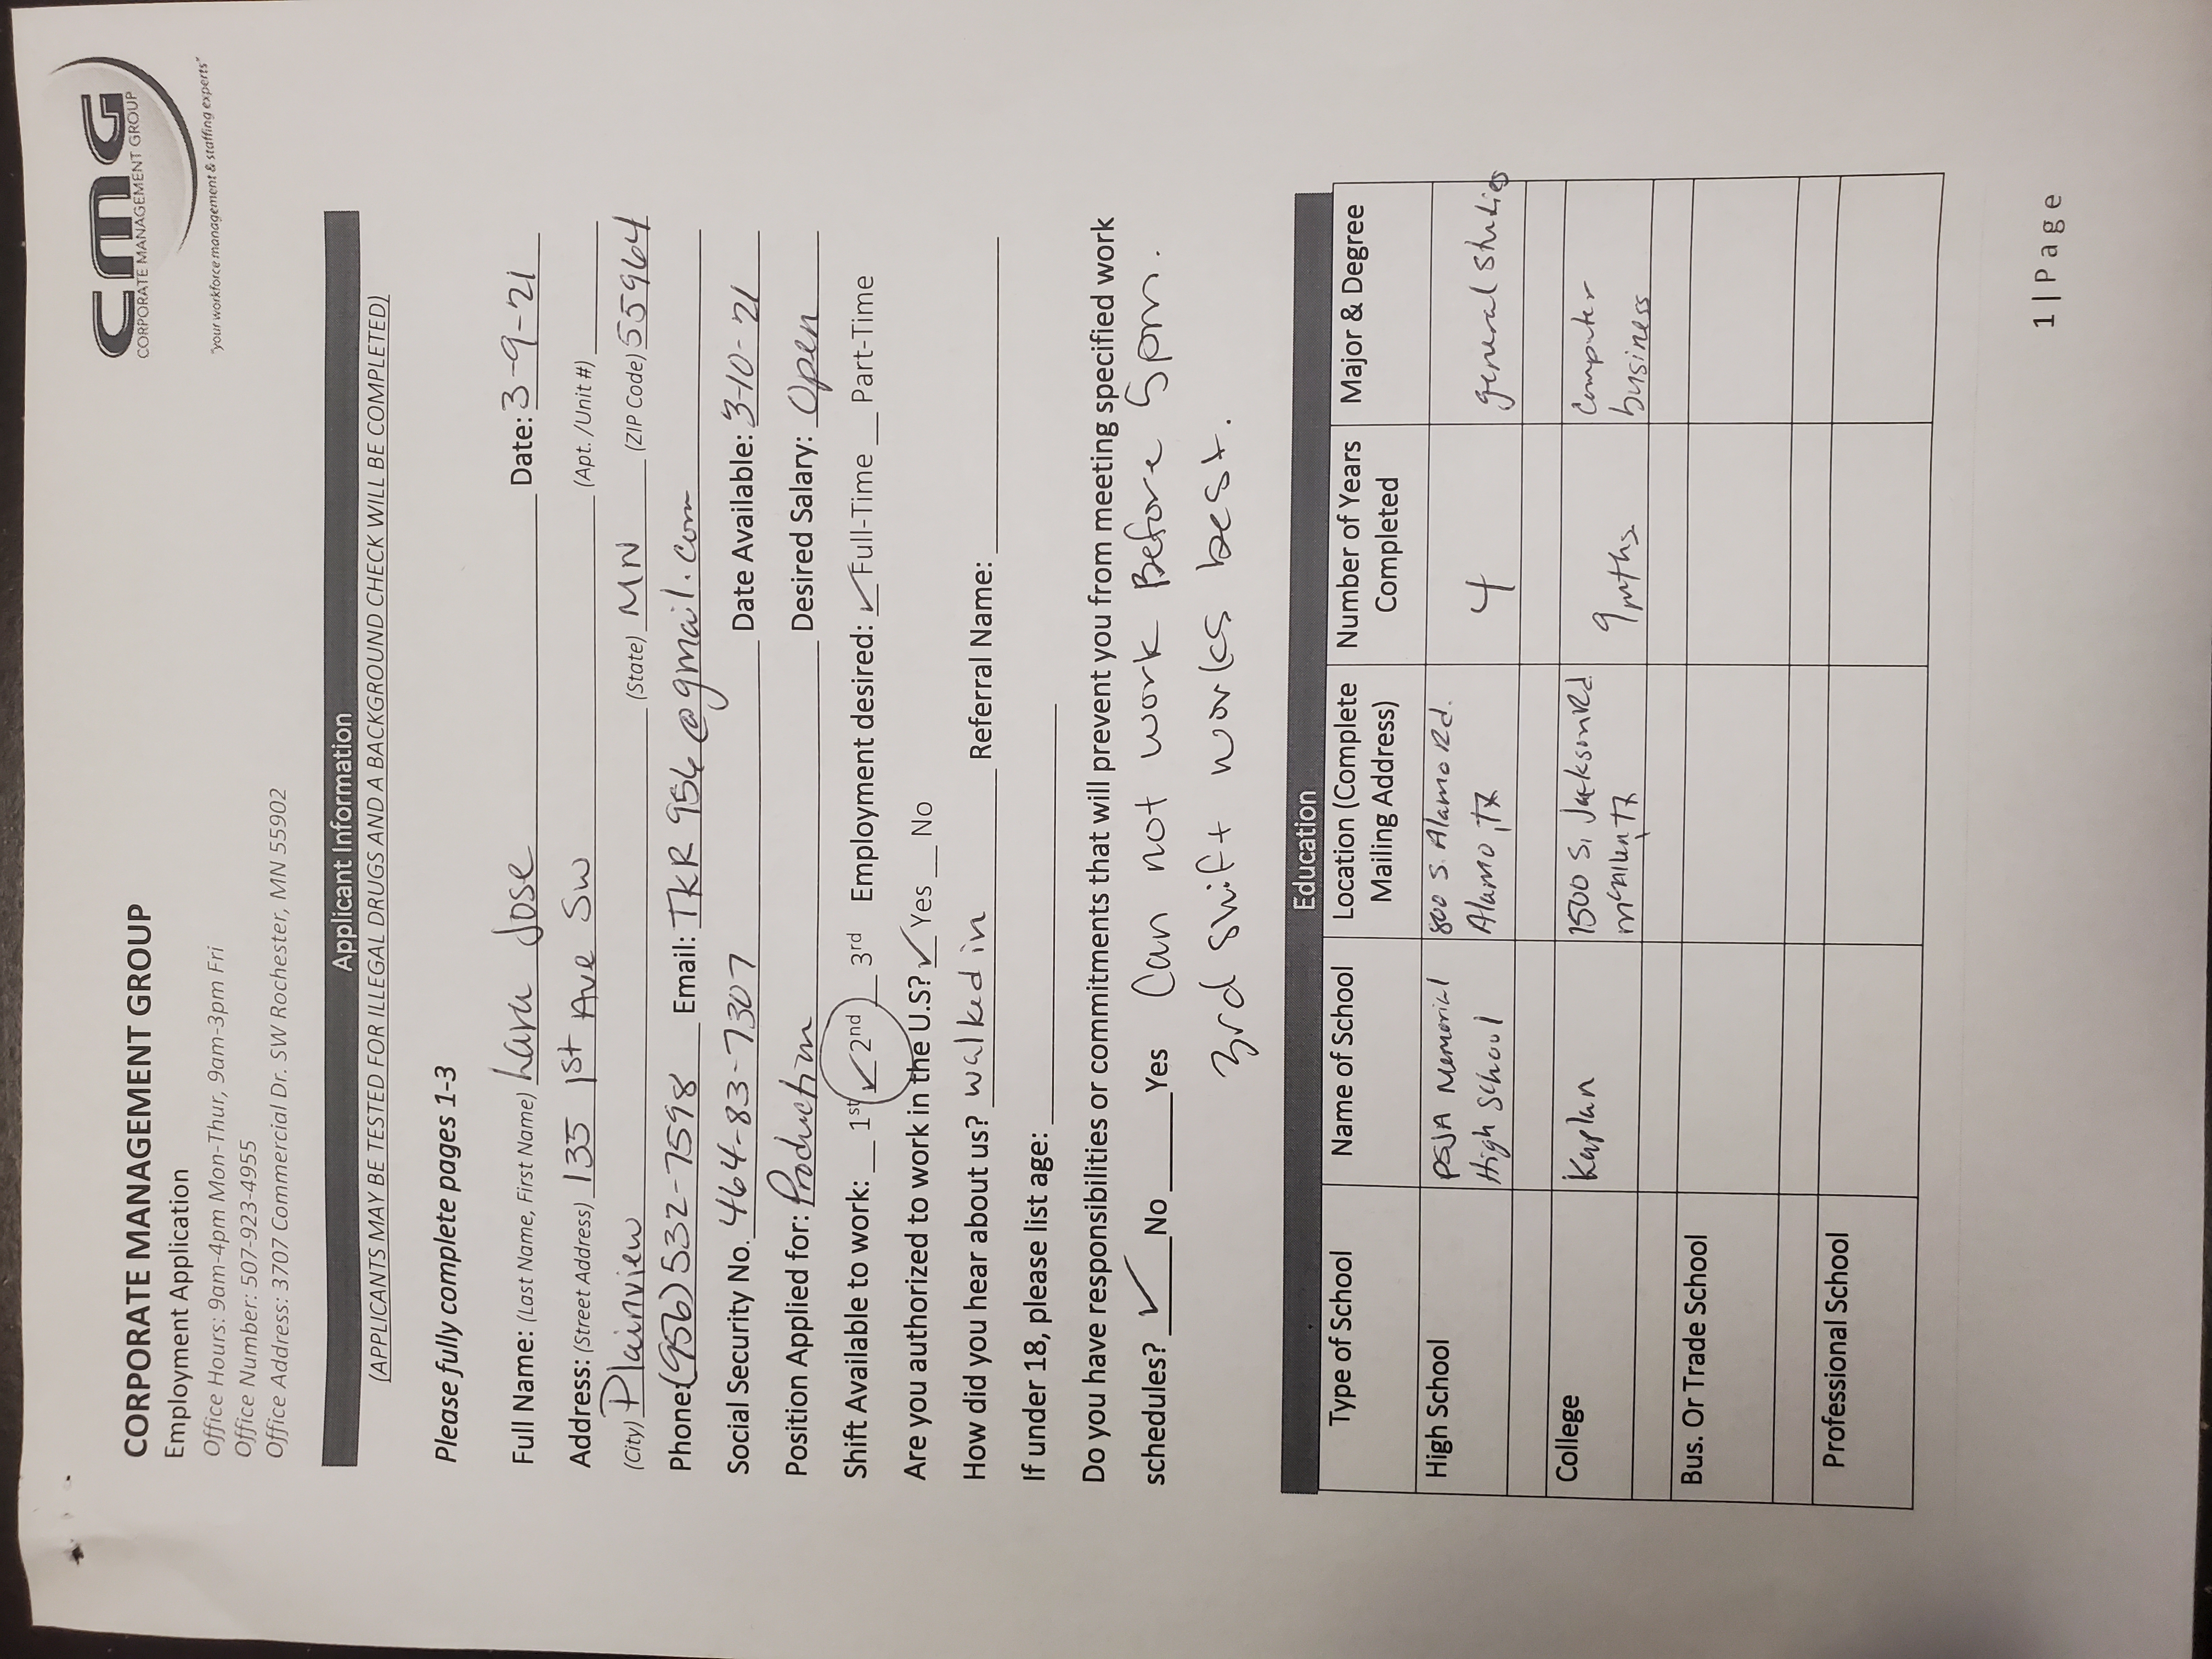 CORPORATE MANAGEMENT GROUP
Employment Application
Office Hours: 9am-4pm Mon-Thur, 9am-3pm Fri
Office Number: 507-923-4955
Office Address: 3707 Commercial Dr. SW Rochester, MN 55902
cmG
CORPORATE MANAGEMENT GROUP
"your workforce management & staffing experts"
Applicant Information
(APPLICANTS MAY BE TESTED FOR ILLEGAL DRUGS AND A BACKGROUND CHECK WILL BE COMPLETED)
Please fully complete pages 1-3
Full Name: (Last Name, First Name) Lara Jose Date: 3-9-21
Address: (Street Address) 135 1st Ave SW (Apt./Unit #)
(City) Plainview (State) MN (ZIP Code) 55964
Phone: (956) 532-7598 Email: TKR956@gmail.com
Social Security No. 464-83-7307 Date Available: 3-10-21
Position Applied for: Production Desired Salary: Open
Shift Available to work: __ 1st ✓ 2nd __ 3rd Employment desired: ✓ Full-Time __ Part-Time
Are you authorized to work in the U.S? ✓ Yes __ No
How did you hear about us? walked in Referral Name:
If under 18, please list age:
Do you have responsibilities or commitments that will prevent you from meeting specified work
schedules? ✓ No ____ Yes Can not work Before 5pm.
3rd shift works best.
Education
Type of School Name of School Location (Complete Mailing Address) Number of Years Completed Major & Degree
High School PSJA Memorial High School 800 S. Alamo Rd. Alamo, TX 4 general studies
College Kaplan 1500 S. Jackson Rd McAllen, TX 9 mths Computer business
Bus. Or Trade School
Professional School
1 | Page